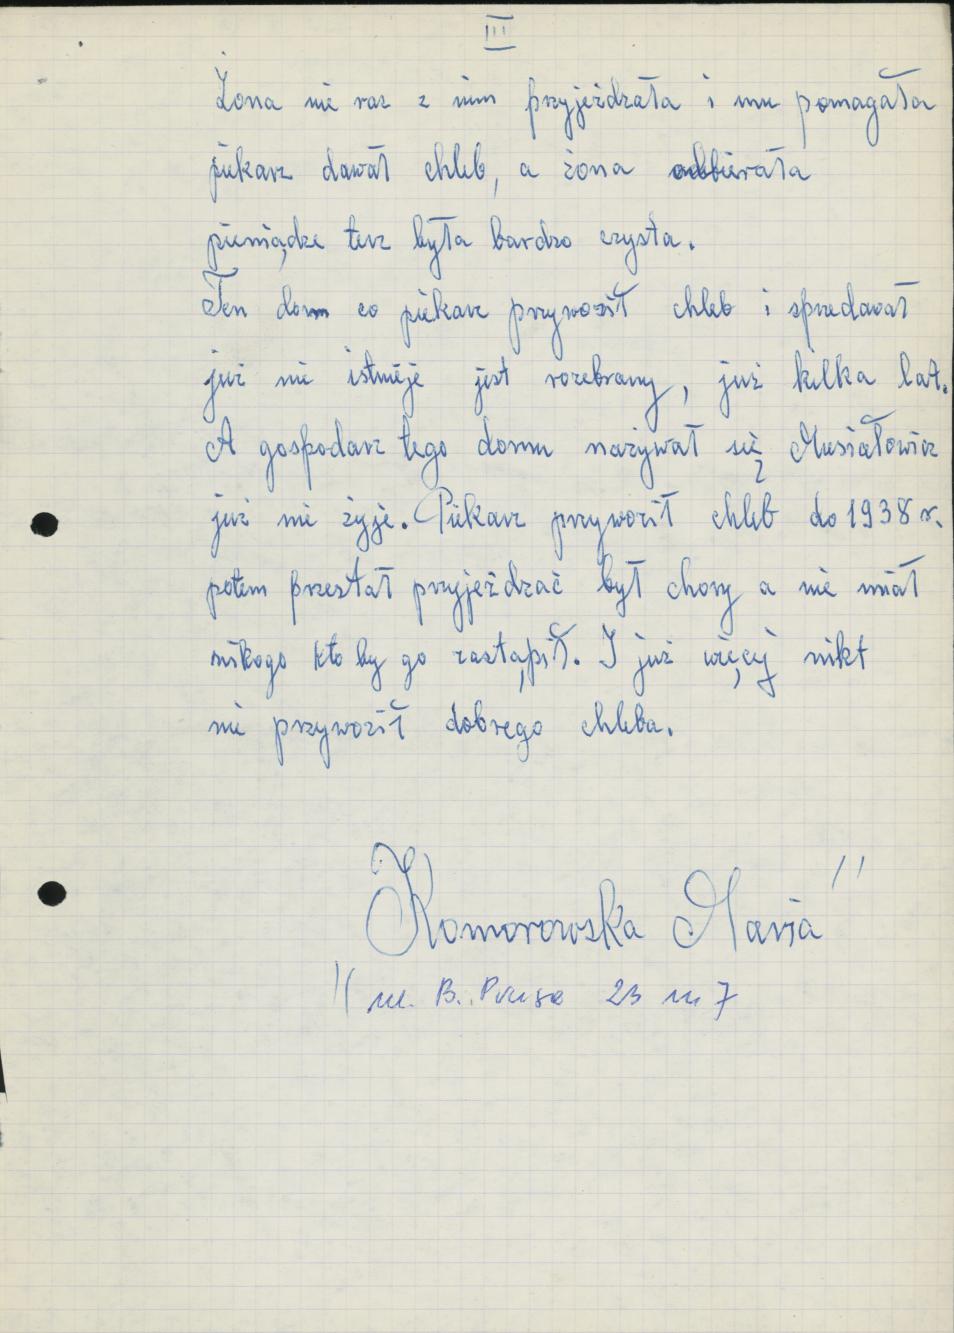 III
Żona nie raz z nim przyjeżdzała i mu pomagała
piekarz dawał chleb, a żona odbierała
pieniądze też była bardzo czysta.
Ten dom co piekarz przywoził chleb i spredawał
już nie istnieje jest rozebrany, już kilka lat.
A gospodarz tego domu nazywał się Musiałowicz
już nie żyje. Piekarz przywoził chleb do 1938 r.
potem przestał przyjeżdzać był chory a nie miał
nikogo kto by go zastąpił. I już więcej nikt
nie przywoził dobrego chleba.
Komorowska Maria //
// ul. B. Prusa 23 m 7